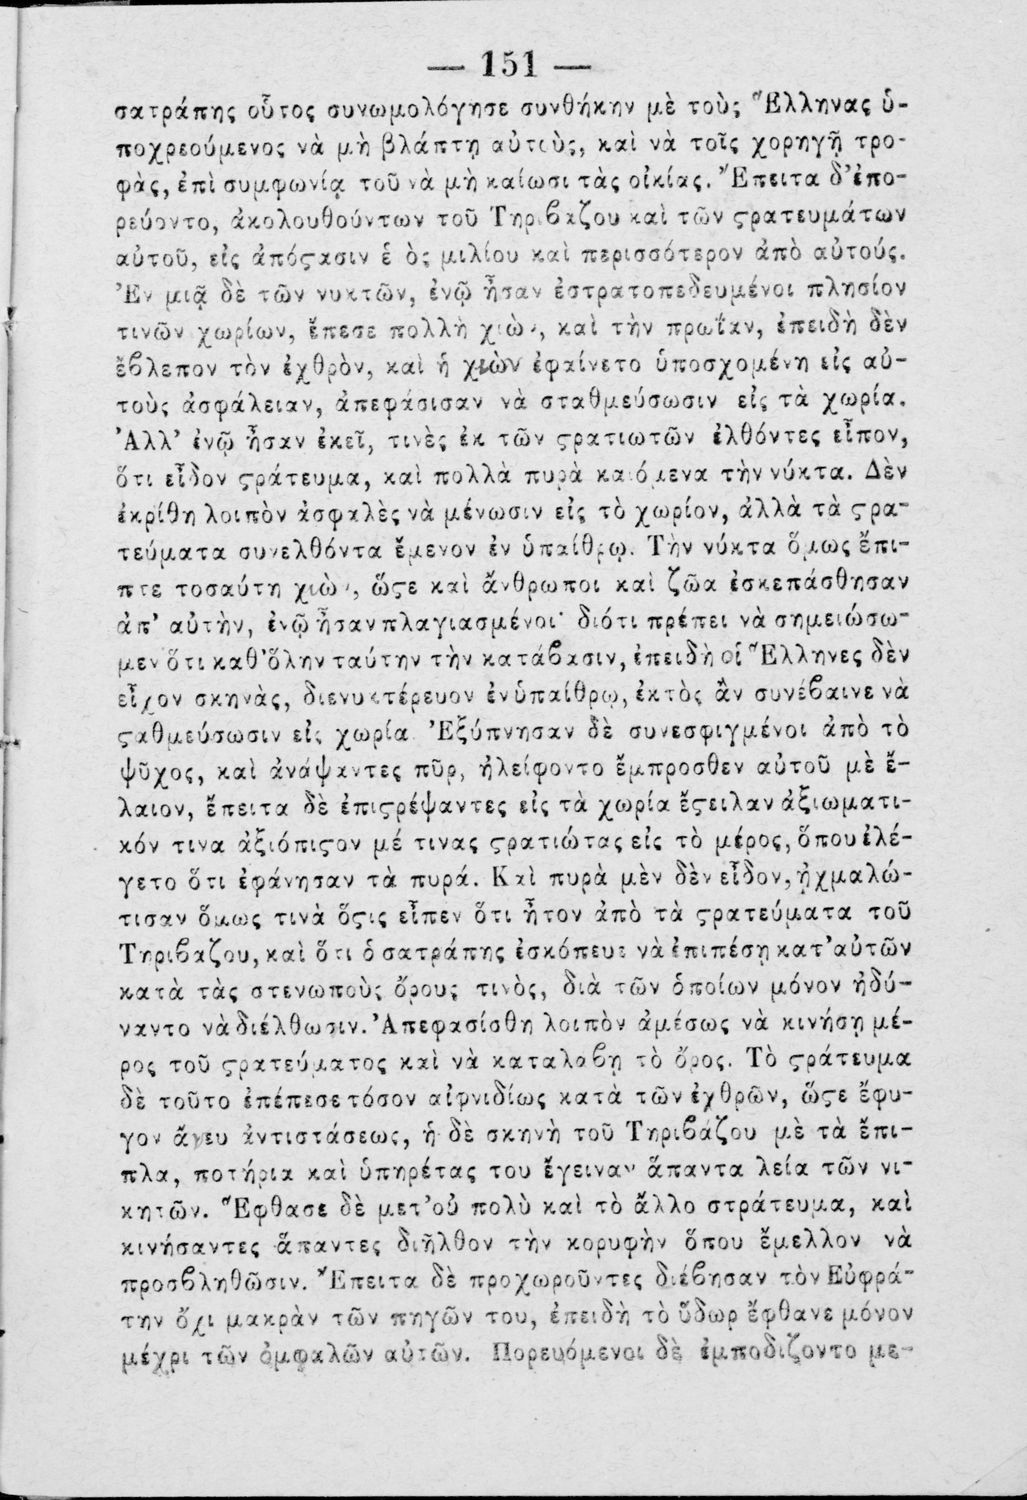 — 151 —
σατράπης οὗτος συνωμολόγησε συνθήκην μὲ τοὺς Ἕλληνας ὑ-
ποχρεούμενος νὰ μὴ βλάπτῃ αὐτοὺς, καὶ νὰ τοῖς χορηγῇ τρο-
φὰς, ἐπὶ συμφωνίᾳ τοῦ νὰ μὴ καίωσι τὰς οἰκίας. Ἔπειτα δ’ ἐπο-
ρεύοντο, ἀκολουθούντων τοῦ Τηριβάζου καὶ τῶν ϛρατευμάτων
αὐτοῦ, εἰς ἀπόϛασιν ἑ ὸς μιλίου καὶ περισσότερον ἀπὸ αὐτούς.
Ἐν μιᾷ δὲ τῶν νυκτῶν, ἐνῷ ἦσαν ἐστρατοπεδευμένοι πλησίον
τινῶν χωρίων, ἔπεσε πολλὴ χιὼν, καὶ τὴν πρωΐαν, ἐπειδὴ δὲν
ἔβλεπον τὸν ἐχθρὸν, καὶ ἡ χιὼν ἐφαίνετο ὑποσχομένη εἰς αὐ-
τοὺς ἀσφάλειαν, ἀπεφάσισαν νὰ σταθμεύσωσιν εἰς τὰ χωρία.
Ἀλλ’ ἐνῷ ἦσαν ἐκεῖ, τινὲς ἐκ τῶν ϛρατιωτῶν ἐλθόντες εἶπον,
ὅτι εἶδον ϛράτευμα, καὶ πολλὰ πυρὰ καιόμενα τὴν νύκτα. Δὲν
ἐκρίθη λοιπὸν ἀσφαλὲς νὰ μένωσιν εἰς τὸ χωρίον, ἀλλὰ τὰ ϛρα-
τεύματα συνελθόντα ἔμενον ἐν ὑπαίθρῳ. Τὴν νύκτα ὅμως ἔπι-
πτε τοσαύτη χιὼν, ὥϛε καὶ ἄνθρωποι καὶ ζῶα ἐσκεπάσθησαν
ἀπ’ αὐτὴν, ἐνῷ ἦσαν πλαγιασμένοι· διότι πρέπει νὰ σημειώσω-
μεν ὅτι καθ’ ὅλην ταύτην τὴν κατάβασιν, ἐπειδὴ οἱ Ἕλληνες δὲν
εἶχον σκηνὰς, διενυκτέρευον ἐν ὑπαίθρῳ, ἐκτὸς ἂν συνέβαινε νὰ
ϛαθμεύσωσιν εἰς χωρία Ἐξύπνησαν δὲ συνεσφιγμένοι ἀπὸ τὸ
ψῦχος, καὶ ἀνάψαντες πῦρ, ἠλείφοντο ἔμπροσθεν αὐτοῦ μὲ ἔ-
λαιον, ἔπειτα δὲ ἐπιϛρέψαντες εἰς τὰ χωρία ἔϛειλαν ἀξιωματι-
κόν τινα ἀξιόπιϛον μέ τινας ϛρατιώτας εἰς τὸ μέρος, ὅπου ἐλέ-
γετο ὅτι ἐφάνησαν τὰ πυρά. Καὶ πυρὰ μὲν δὲν εἶδον, ᾐχμαλώ-
τισαν ὅμως τινὰ ὅϛις εἶπεν ὅτι ἦτον ἀπὸ τὰ ϛρατεύματα τοῦ
Τηριβαζου, καὶ ὅτι ὁ σατράπης ἐσκόπευε νὰ ἐπιπέσῃ κατ’ αὐτῶν
κατὰ τὰς στενωποὺς ὄρους τινὸς, διὰ τῶν ὁποίων μόνον ἠδύ-
ναντο νὰ διέλθωσιν. Ἀπεφασίσθη λοιπὸν ἀμέσως νὰ κινήσῃ μέ-
ρος τοῦ ϛρατεύματος καὶ νὰ καταλαβῃ τὸ ὄρος. Τὸ ϛράτευμα
δὲ τοῦτο ἐπέπεσε τόσον αἰφνιδίως κατὰ τῶν ἐχθρῶν, ὥϛε ἔφυ-
γον ἄνευ ἀντιστάσεως, ἡ δὲ σκηνὴ τοῦ Τηριβάζου μὲ τὰ ἔπι-
πλα, ποτήρια καὶ ὑπηρέτας του ἔγειναν ἅπαντα λεία τῶν νι-
κητῶν. Ἔφθασε δὲ μετ’ οὐ πολὺ καὶ τὸ ἄλλο στράτευμα, καὶ
κινήσαντες ἅπαντες διῆλθον τὴν κορυφὴν ὅπου ἔμελλον νὰ
προσβληθῶσιν. Ἔπειτα δὲ προχωροῦντες διέβησαν τὸν Εὐφρά-
την ὄχι μακρὰν τῶν πηγῶν του, ἐπειδὴ τὸ ὕδωρ ἔφθανε μόνον
μέχρι τῶν ὀμφαλῶν αὐτῶν. Πορευόμενοι δὲ ἐμποδιζοντο με-